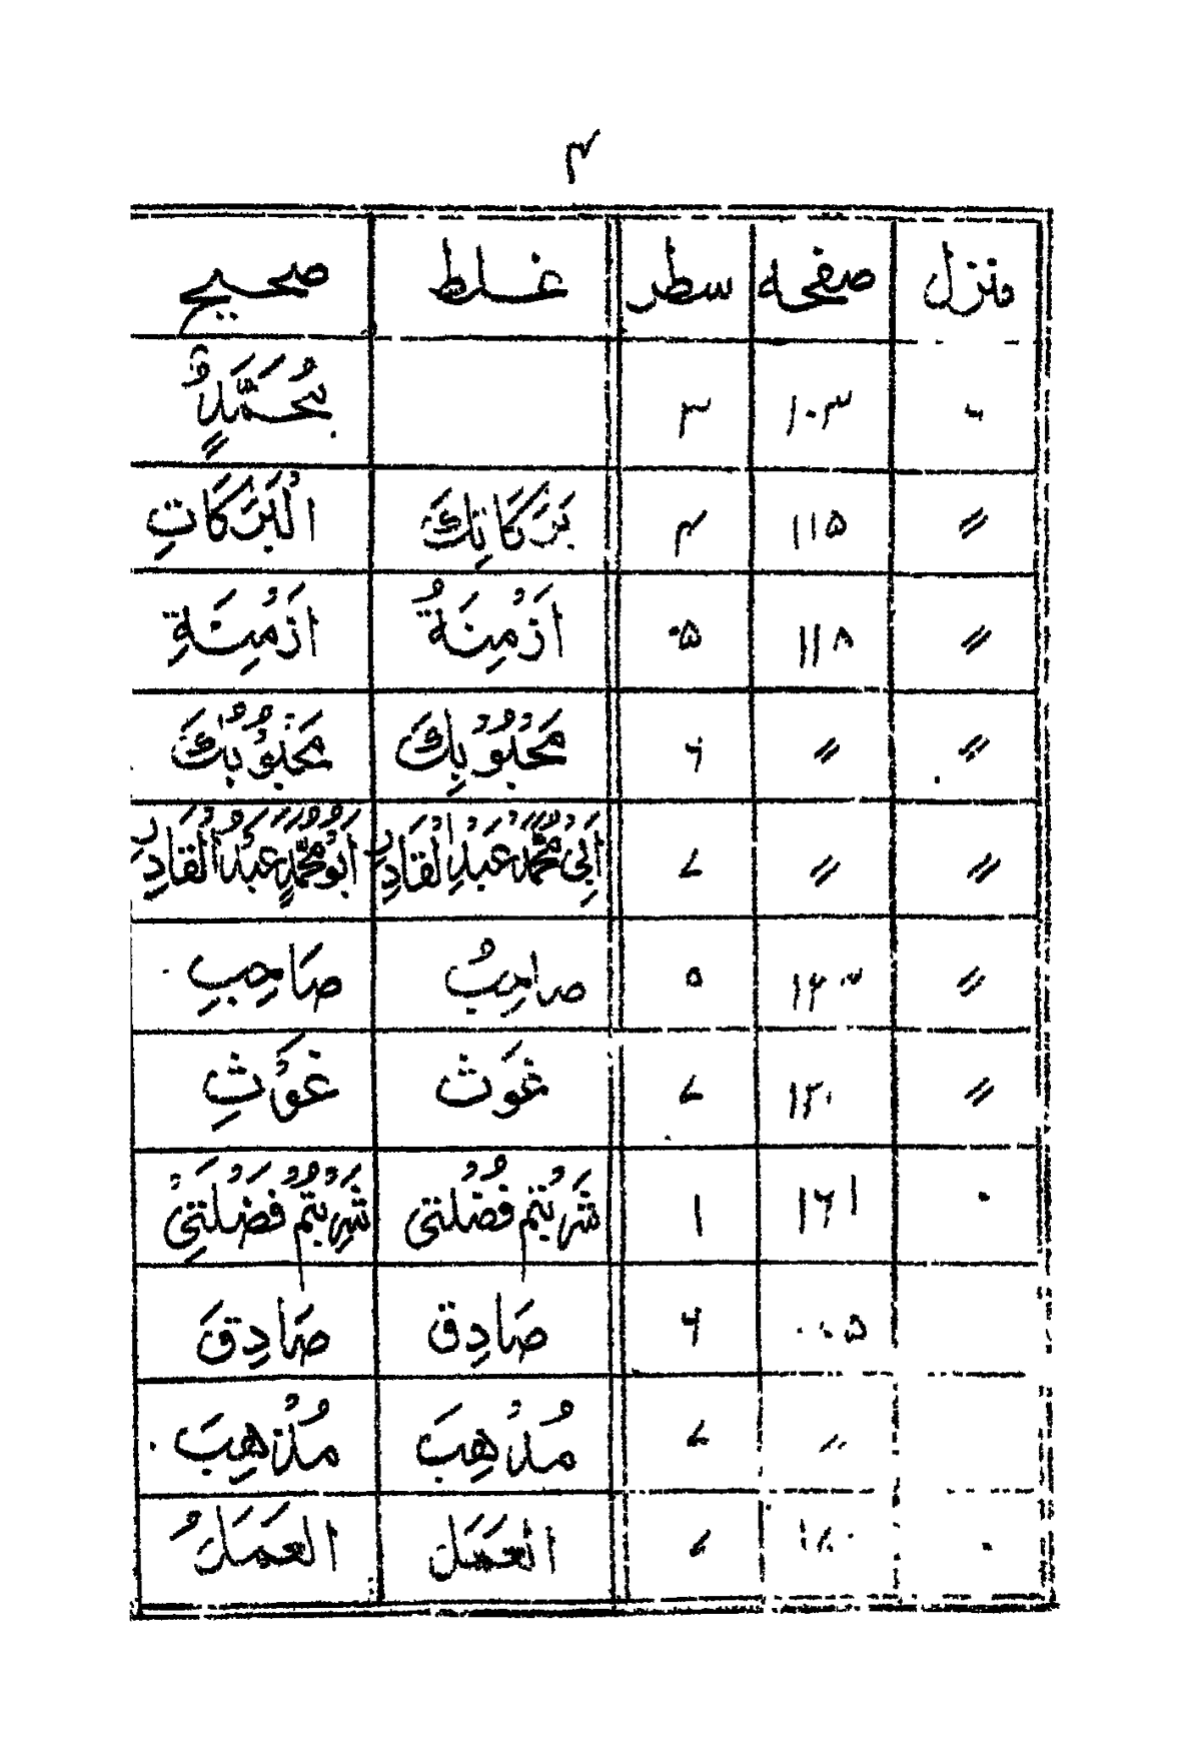 ۴
منزل صفحه سطر غلط صحیح
۱۰۳ ۳ بِحُمَّدٍ
〃 ۱۱۵ ۴ بَرَكَاتِكَ الْبَرَكَاتِ
〃 ۱۱۸ ۵ اَزْمِنَةُ اَزْمِنَةِ
〃 〃 ۶ مَحْبُوْبِكَ مَحْبُوْبُكَ
〃 〃 ۷ اَبِیْ مُحَمَّدْ عَبْدِ الْقَادِرِ اَبُوْ مُحَمَّدٍ عَبْدُ الْقَادِرِ
〃 ۵ صاحِبُ صَاحِبِ
〃 ۷ غَوث غَوْثِ
۱۶۱ ۱ شَرِبْتُمْ فُضْلَتِی شَرِبْتُمْ فَضْلَتِیْ
۶ صَادِق صَادِقَ
〃 ۷ مُذْهِبَ مُذْهِبَ
العَمَل العَمَلُ